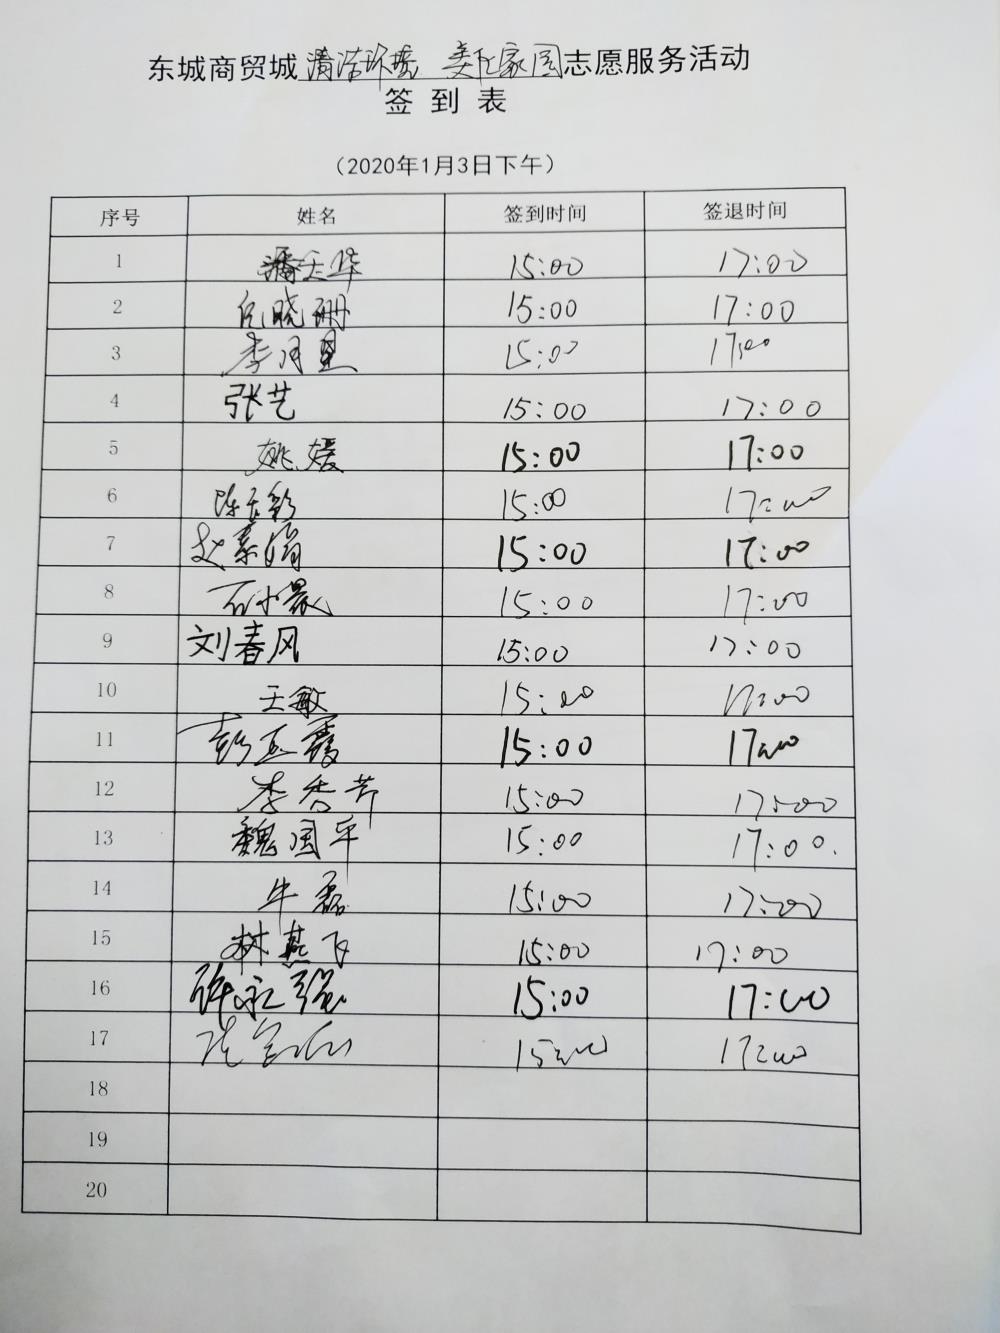 东城商贸城清洁环境 美化家园志愿服务活动
签到表
（2020年1月3日下午）
序号 姓名 签到时间 签退时间
1 潘天华 15:00 17:00
2 晓珊 15:00 17:00
3 李月星 15:00 17:00
4 张艺 15:00 17:00
5 姚媛 15:00 17:00
6 陈彩 15:00 17:00
7 赵素娟 15:00 17:00
8 石小晨 15:00 17:00
9 刘春风 15:00 17:00
10 王敏 15:00 17:00
11 彭亚霞 15:00 17:00
12 李香芹 15:00 17:00
13 魏国平 15:00 17:00.
14 牛磊 15:00 17:00
15 林燕飞 15:00 17:00
16 许永强 15:00 17:00
17 15:00 17:00
18
19
20